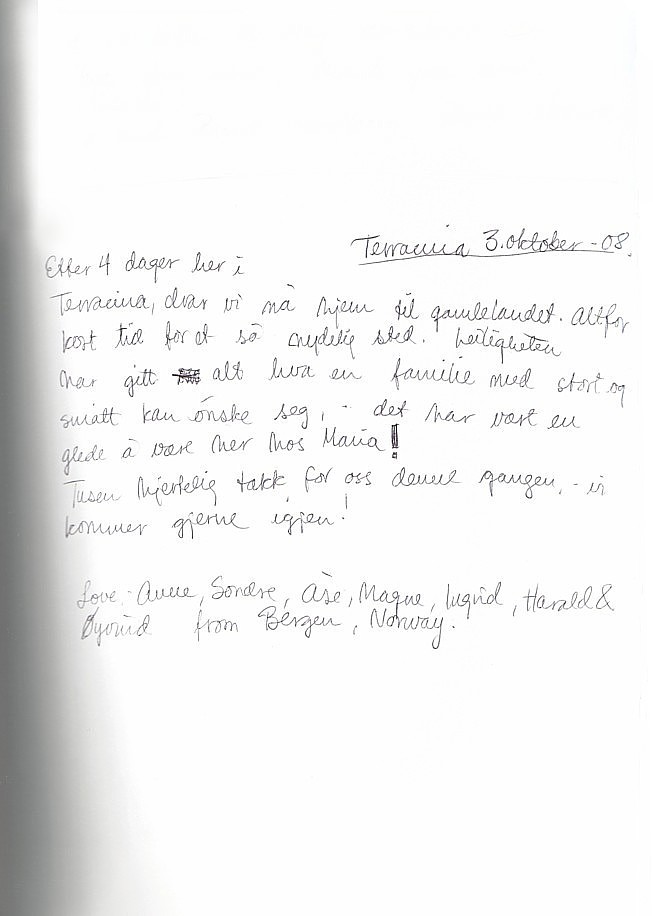 Terracina 3. oktober -08.
Etter 4 dager her i
Terracina, drar vi nå hjem til gamlelandet. Altfor
kort tid for et så nydelig sted. Leiligheten
har gitt alt hva en familie med stort og
smått kan ønske seg, - det har vært en
glede å være her hos Maria!
Tusen hjertelig takk for oss denne gangen, - vi
kommer gjerne igjen!
Love: Anne, Sondre, Åse, Magne, Ingrid, Harald &
Øyvind from Bergen, Norway.